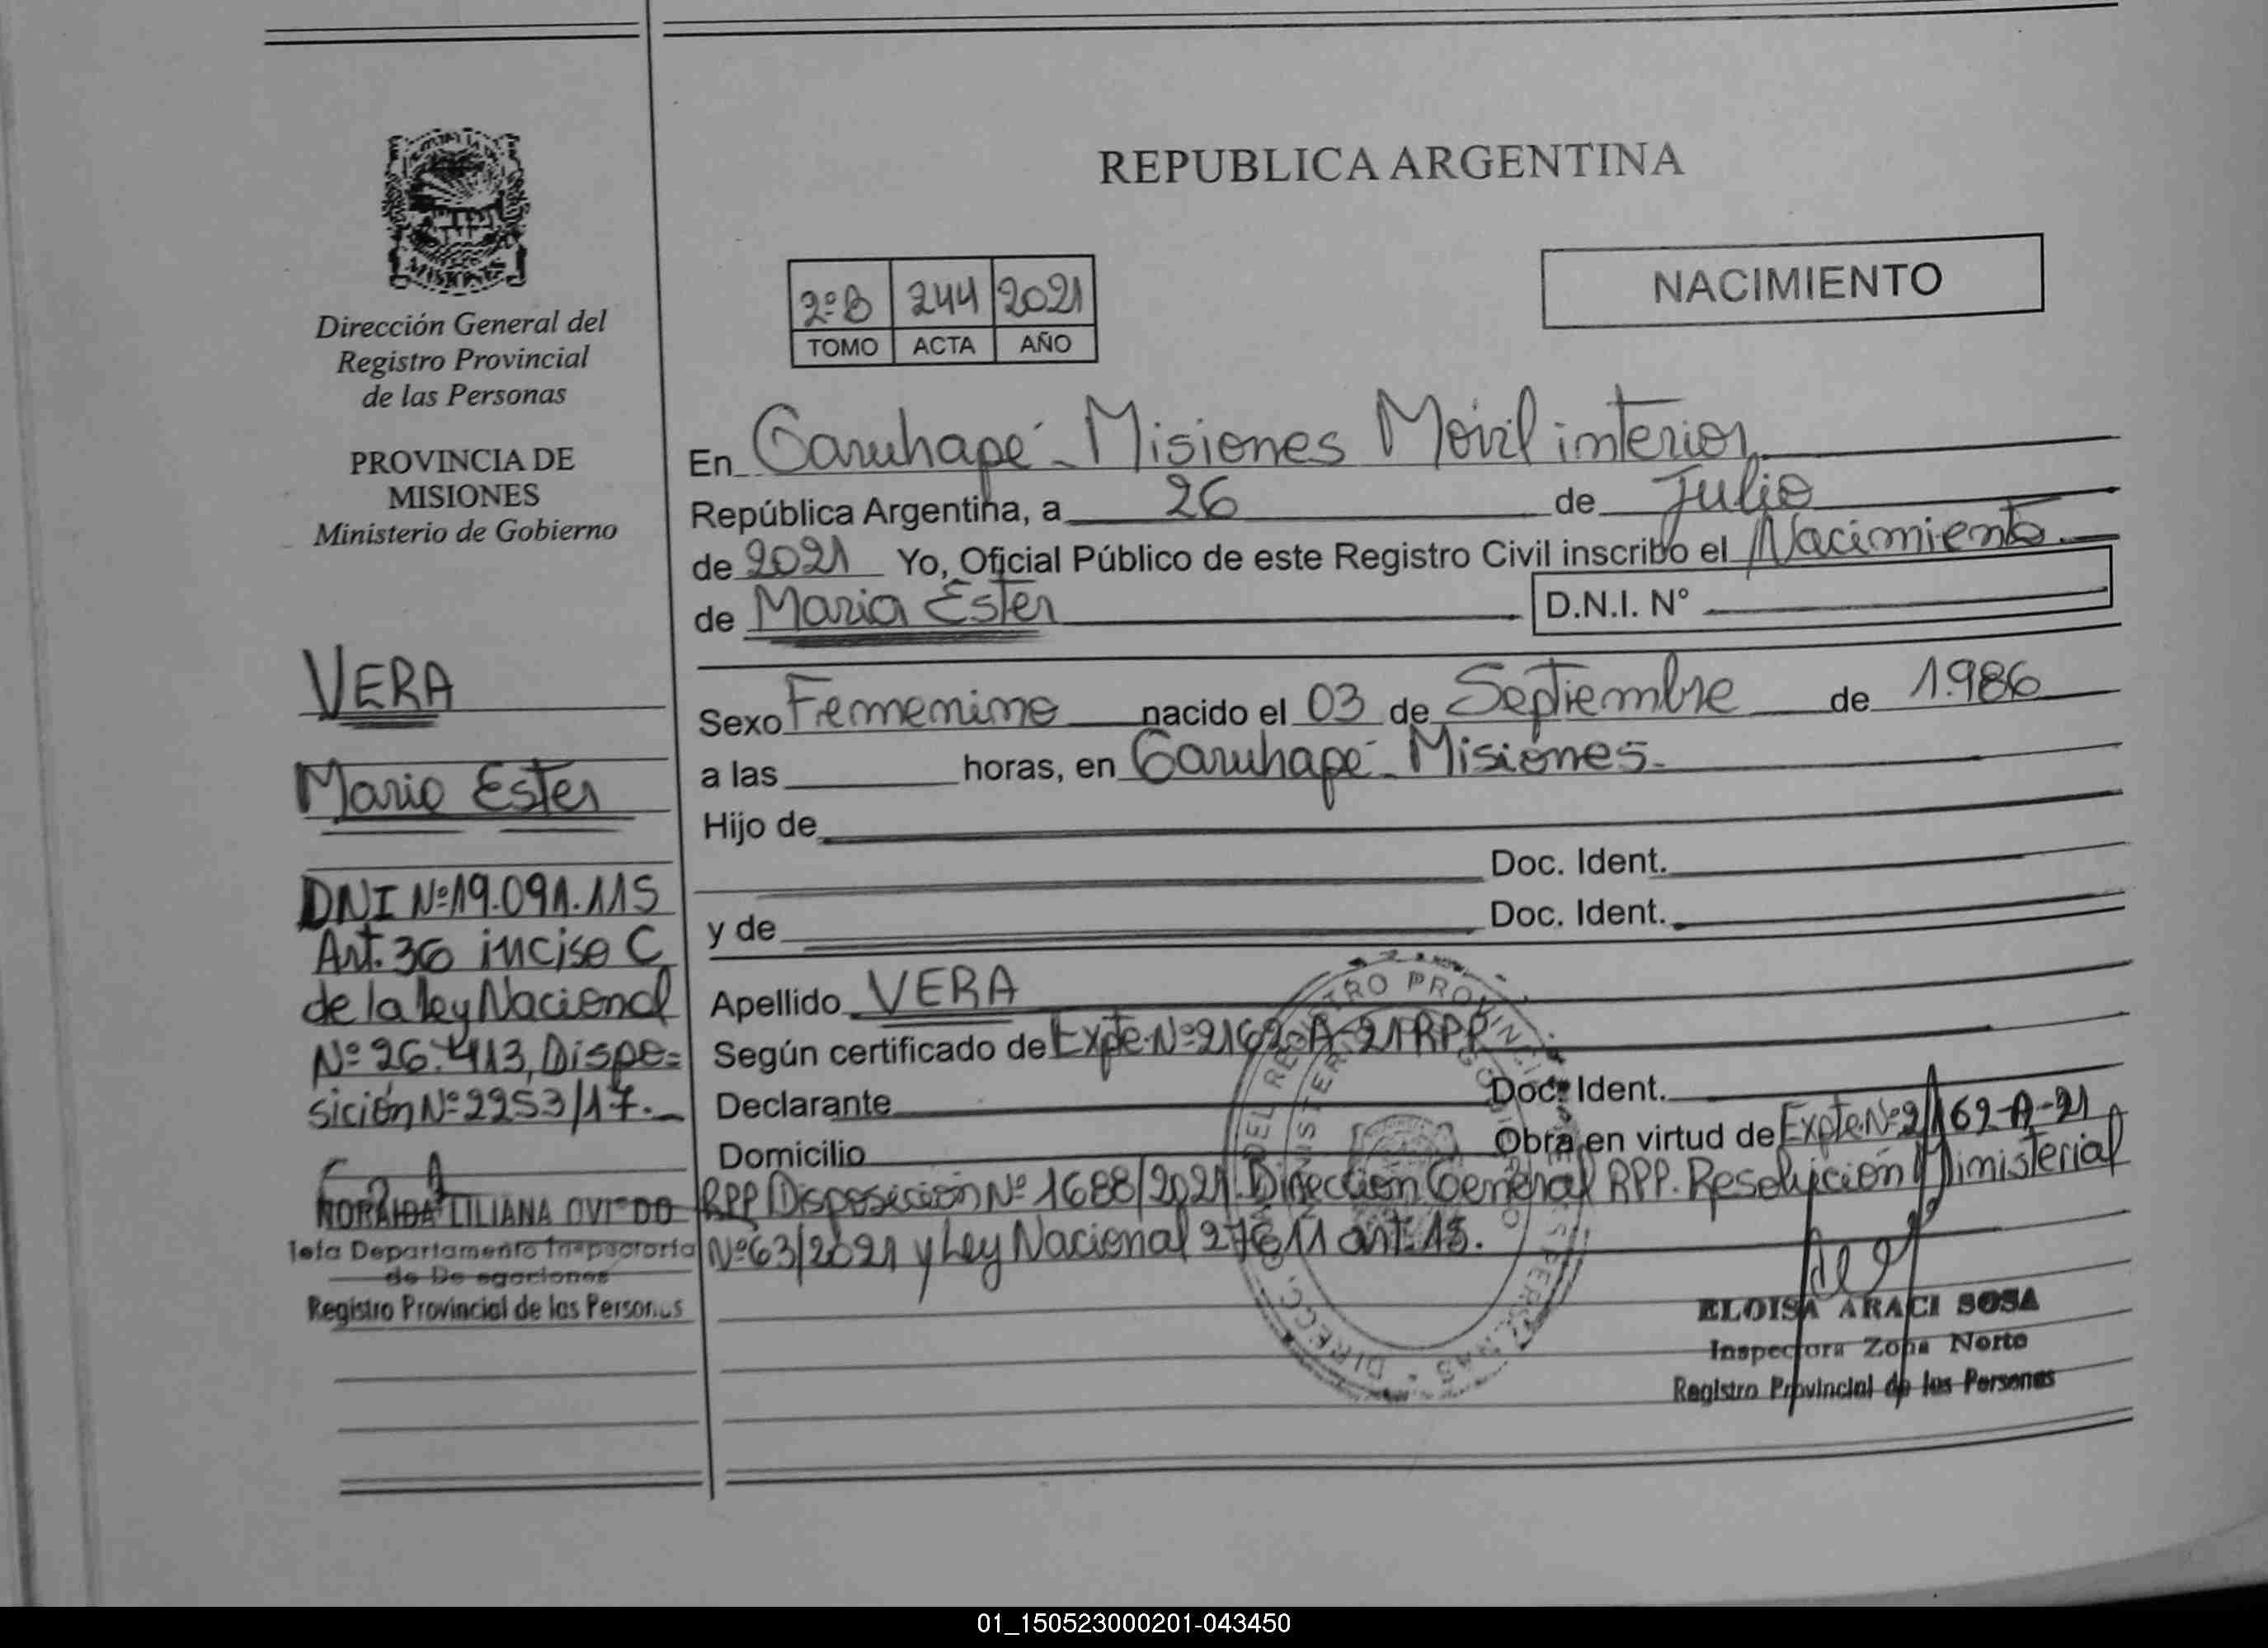 MISIONES
Dirección General del
Registro Provincial
de las Personas
PROVINCIA DE
MISIONES
Ministerio de Gobierno
VERA
Maria Ester
DNI Nº 19.091.115
Art. 36 inciso C
de la ley Nacional
Nº 26.413, Dispo=
sición Nº 2253/17.
LILIANA OVIEDO
Jefa Departamento Inspectoria
de Delegaciones
Registro Provincial de las Personas
REPUBLICA ARGENTINA
NACIMIENTO
2º B 244 2021
TOMO ACTA AÑO
En Garuhapé - Misiones Móvil interior
República Argentina, a 26 de Julio
de 2021 Yo, Oficial Público de este Registro Civil inscribo el Nacimiento
de Maria Ester D.N.I. N°
Sexo Femenino nacido el 03 de Septiembre de 1.986
a las horas, en Garuhapé - Misiones.
Hijo de
Doc. Ident.
y de Doc. Ident.
Apellido VERA
Según certificado de Expte. Nº 2162-A-21 RPP
Declarante Doc. Ident.
Domicilio Obra en virtud de Expte. Nº 2162-A-21
RPP Disposición Nº 1688/2021 Dirección General RPP. Resolución Ministerial
Nº 63/2021 y Ley Nacional 27611 art. 15.
ELOISA ARACI SOSA
Inspectora Zona Norte
Registro Provincial de las Personas
01_150523000201-043450